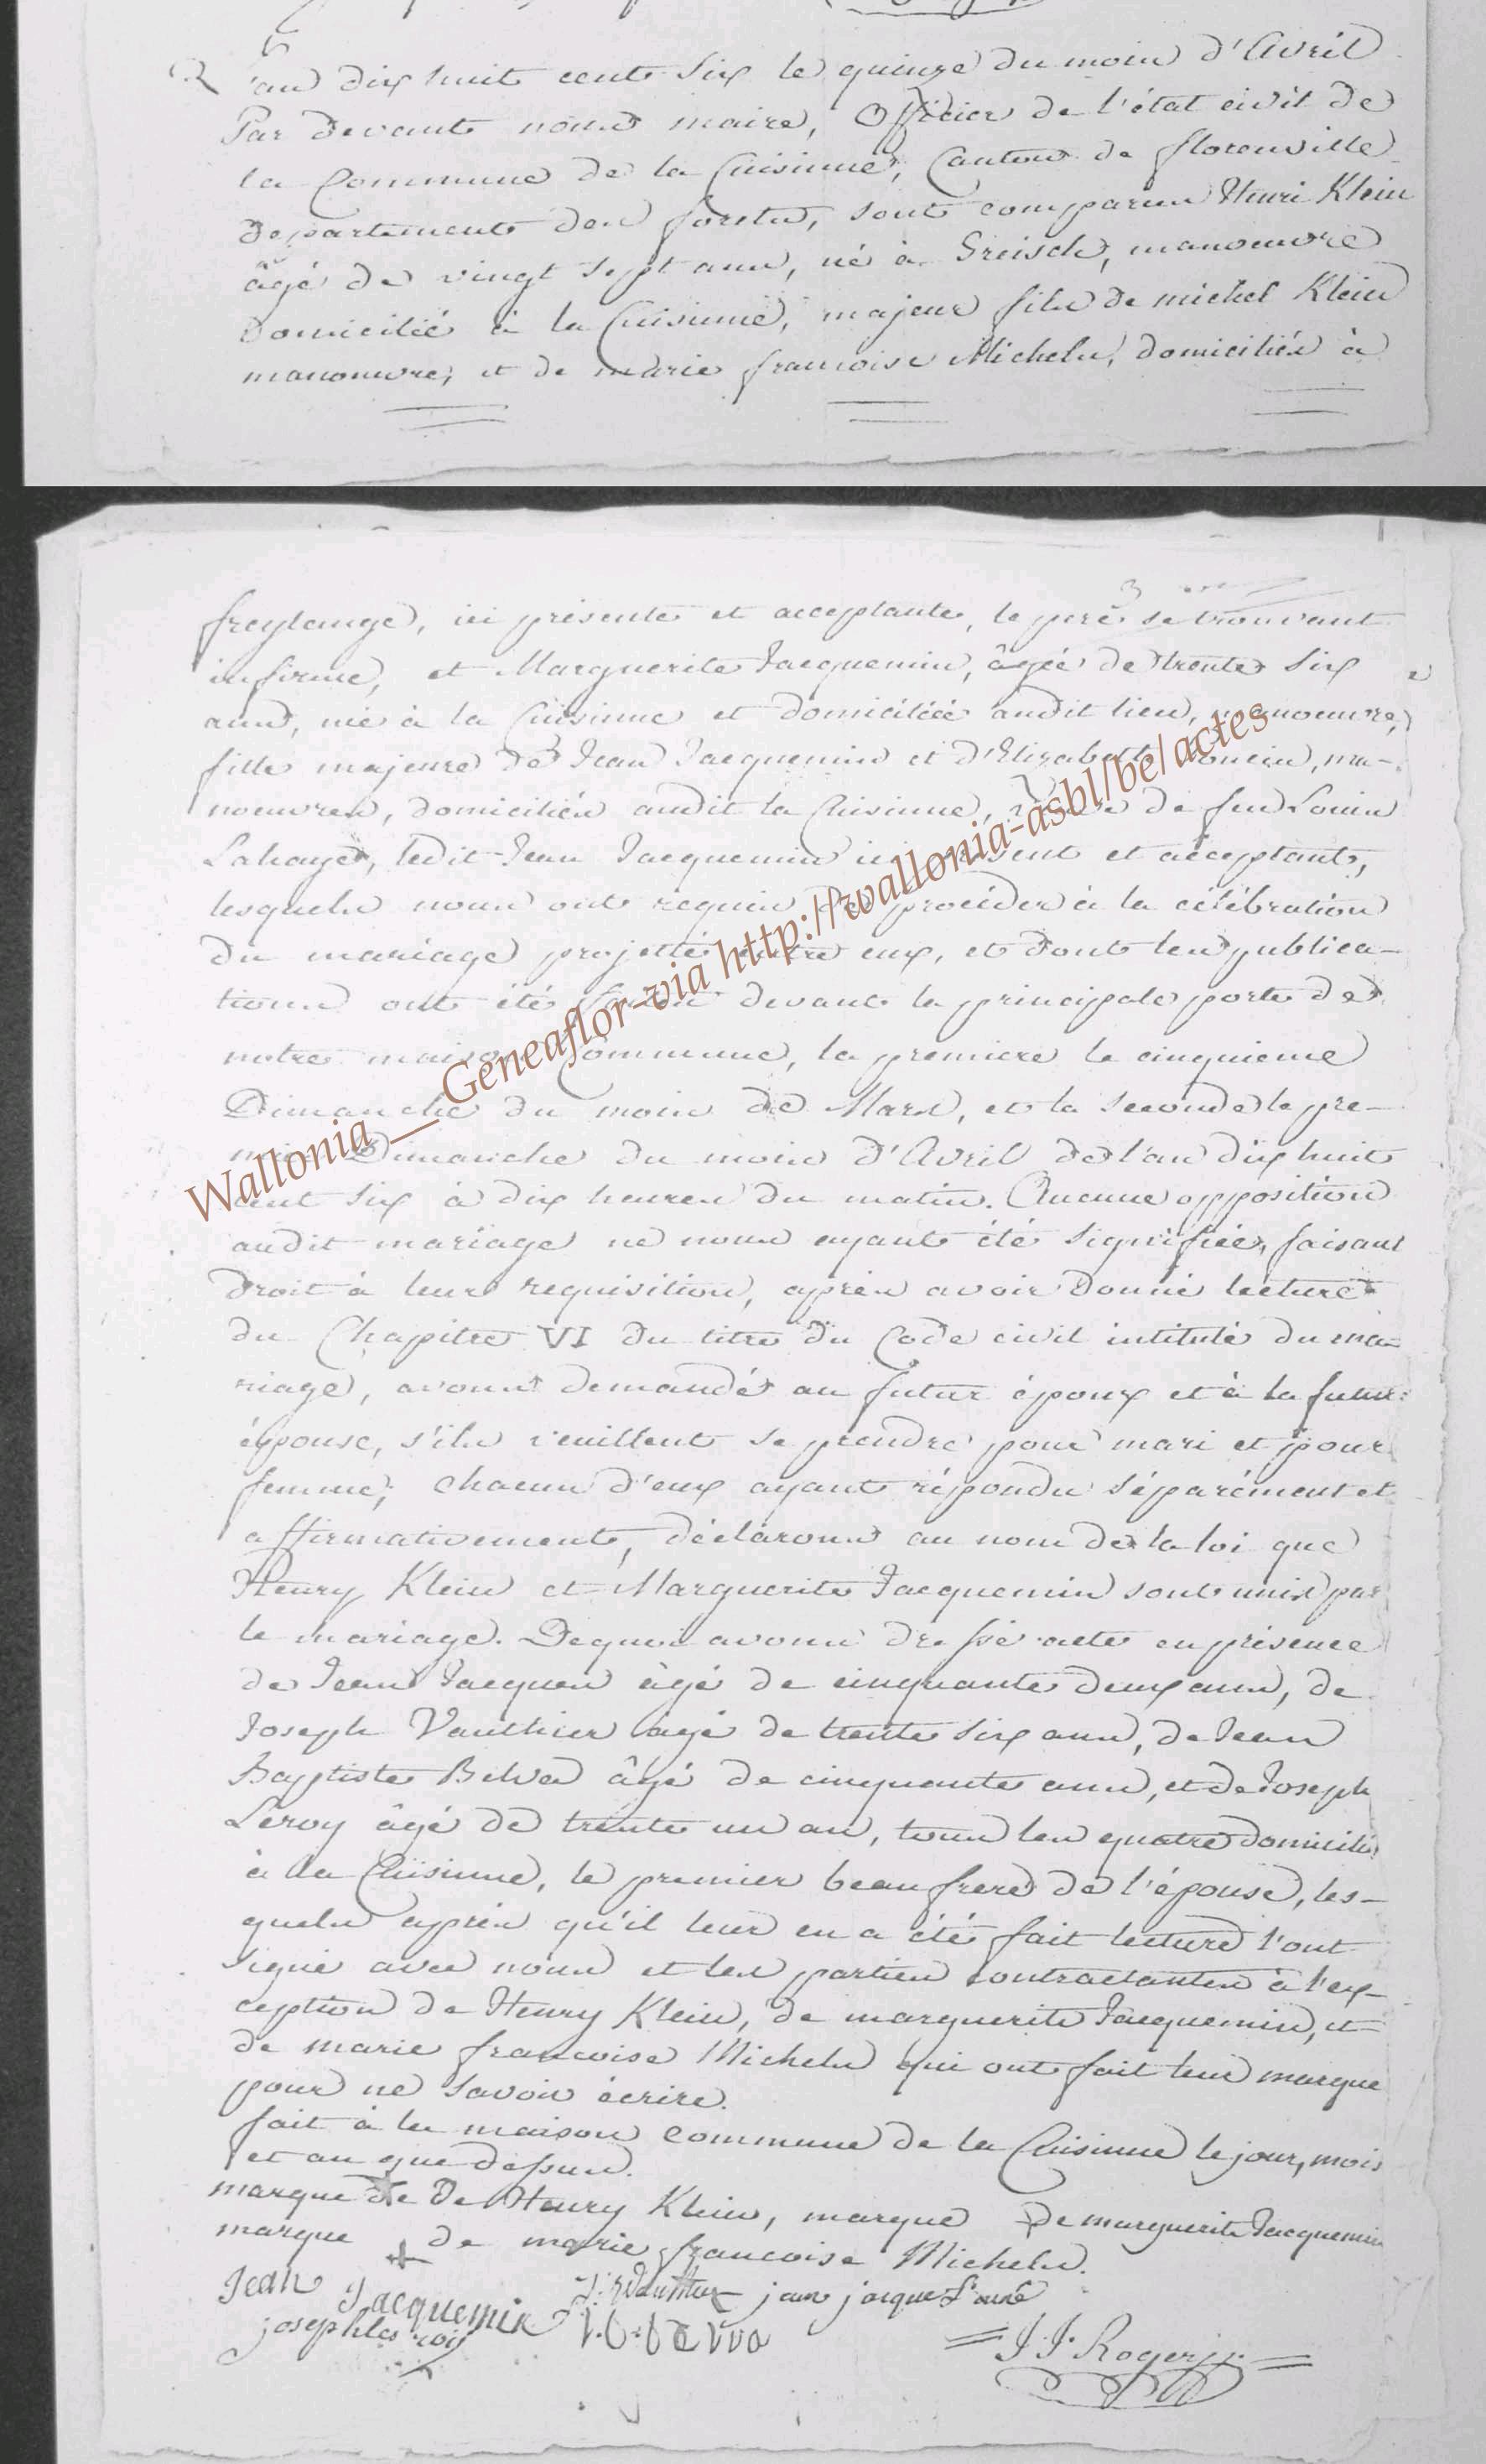 L'an dix huit cent six le quinze du mois d'Avril
Par devant nous maire, Officier de l'état civil de
la Commune de la Cuisinne, Canton de florenville
departement des forets, sont comparus Henri Klein
âgé de vingt sept ans, né à Greisch, manoeuvre
domicilié à la Cuisinne, majeur fils de michel Klein
manoeuvre, et de marie francoise Michels, domiciliés à
freylange, ici présente et acceptante, le pere se trouvant
infirme, et Marguerite Jacquemin, âgée de trente six
ans, née à la Cuisinne et domiciliée audit lieu, manoeuvre,
fille majeure de Jean Jacquemin et d'Elizabeth, ma-
noeuvres, domiciliés audit la Cuisinne, veuve de feu Louis
Lahaye, ledit Jean Jacquemin ici présent et acceptant,
lesquels nous ont requis de procéder à la célébration
du mariage projetté entre eux, et dont les publica-
tions ont été faites devant la principale porte de
notre maison Commune, la premiere le cinquieme
Dimanche du mois de Mars, et la seconde le pre-
mier Dimanche du mois d'Avril de l'an dix huit
cent six à dix heures du matin. Aucune opposition
audit mariage ne nous ayant été signifiée, faisant
droit à leur requisition, après avoir donné lecture
du Chapitre VI du titre du Code civil intitulé du ma-
riage, avons demandé au futur époux et à la future
épouse, s'ils veuillent se prendre pour mari et pour
femme; chacun d'eux ayant répondu séparément et
affirmativement, déclarons au nom de la loi que
Henry Klein et Marguerite Jacquemin sont unis par
le mariage. Dequoi avons dressé acte en présence
de Jean Jacques âgé de cinquante deux ans, de
Joseph Vauthier âgé de trente six ans, de Jean
Baptiste Belva âgé de cinquante ans, et de Joseph
Leroy âgé de trente un an, tous les quatre domiciliés
à la Cuisinne, le premier beau frere de l'épouse, les-
quels après qu'il leur en a été fait lecture l'ont
signé avec nous et les parties contractantes à l'ex-
ception de Henry Klein, de marguerite Jacquemin, et
de marie francoise Michels qui ont fait leur marque
pour ne savoir écrire.
fait à la maison commune de la Cuisinne le jour, mois
et an que dessus.
marque de Henry Klein, marque de marguerite Jacquemin
marque + de marie francoise Michels.
Jean Jacquemin jean jacque
joseph le roij
J J Roger
Wallonia__Geneaflor-via http://wallonia-asbl/be/actes